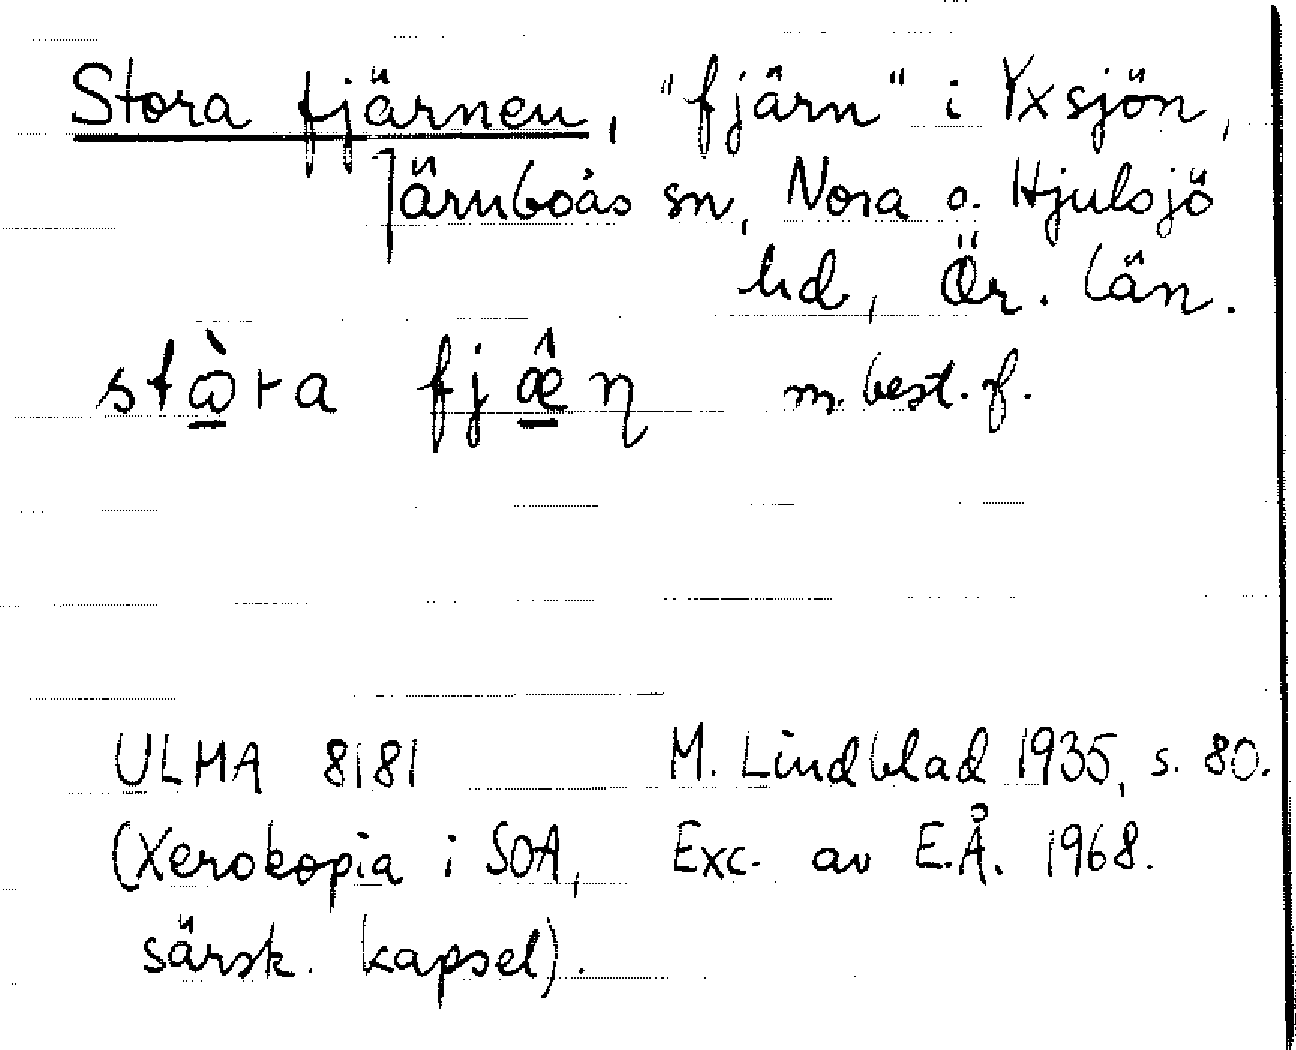 Stora fjärnen, "fjärn" i Yxsjön,
Järnboås sn, Nora o. Hjulsjö
hd, Ör. län.
stὼra fjæ̂ŋ m. best. f.
ULMA 8181 M. Lindblad 1935, s. 80.
(Xerokopia i SOA, Exc. av E.Å. 1968.
särsk. kapsel).